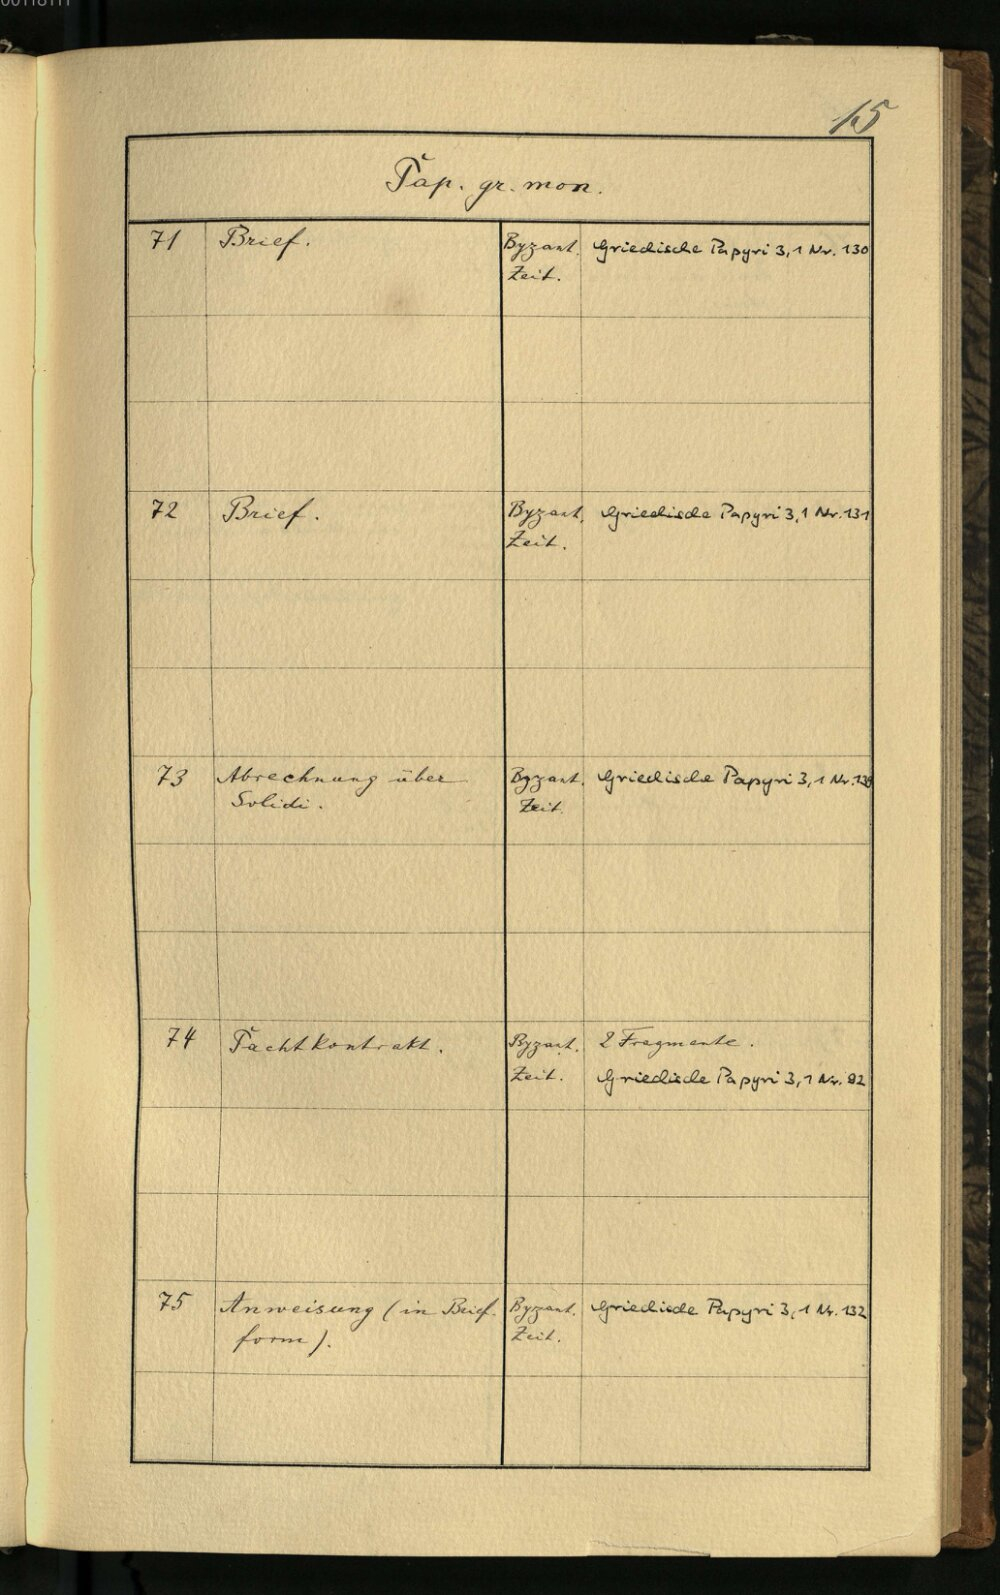 15
Pap. gr. mon.
71 Brief. Byzant. Griechische Papyri 3,1 Nr. 130
Zeit.
72 Brief. Byzant. Griechische Papyri 3,1 Nr. 131
Zeit.
73 Abrechnung über Byzant. Griechische Papyri 3,1 Nr.
Solidi. Zeit.
74 Pachtkontrakt. Byzant. 2 Fragmente.
Zeit. Griechische Papyri 3,1 Nr. 92
75 Anweisung (in Brief Byzant. Griechische Papyri 3,1 Nr. 132
form). Zeit.